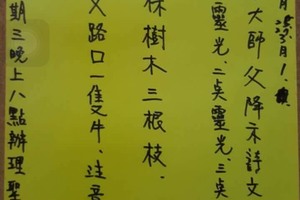 大師父降示詩文
靈光、三点靈光、三点
林樹木三根枝、
叉路口一隻叉牛、注意
期三晚上八點辦理聖